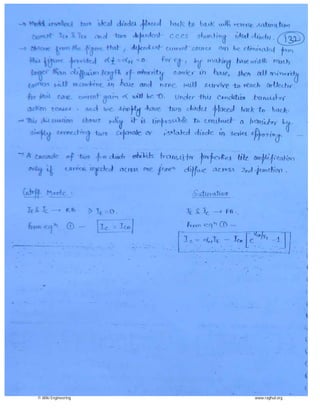 → Model involves two ideal diodes placed back to back with reverse saturation
current Ico & Ieo and two dependent CCCS shunting ideal diodes. (132)
→ Observe from the figure that, dependent current source can be eliminated from
this figure provided αI = αN = 0. For eg, by making base width much
larger than diffusion length of minority carrier in base, then all minority
carriers will recombine in base and none will survive to reach collector
for this case, current gain α will be 0. Under this condition transistor
action ceases, and we simply have two diodes placed back to back.
→ This discussion shows why it is impossible to construct a transistor by
simply connecting two separate or isolated diode in series opposing.
→ A cascade of two p-n diode exhibits transistor properties like amplification
only if carrier injected across one junction diffuse across 2nd junction.
Cutoff Mode :
Saturation
JE & JC → RB ⇒ IE = 0.
JE & JC → FB.
From eqn ① — IC = ICO
From eqn ① —